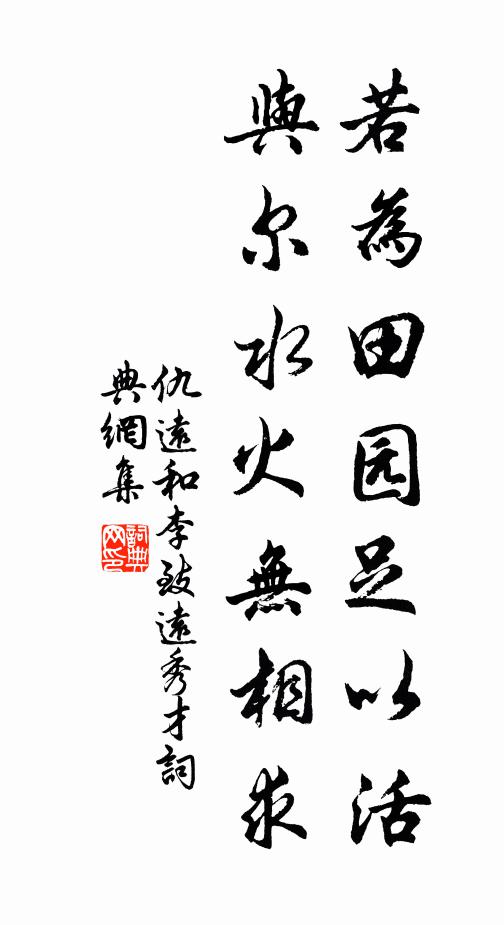 若為田园足以活
與尔水火無相求
仇遠和李致遠秀才詞
典網集
詞典
网印